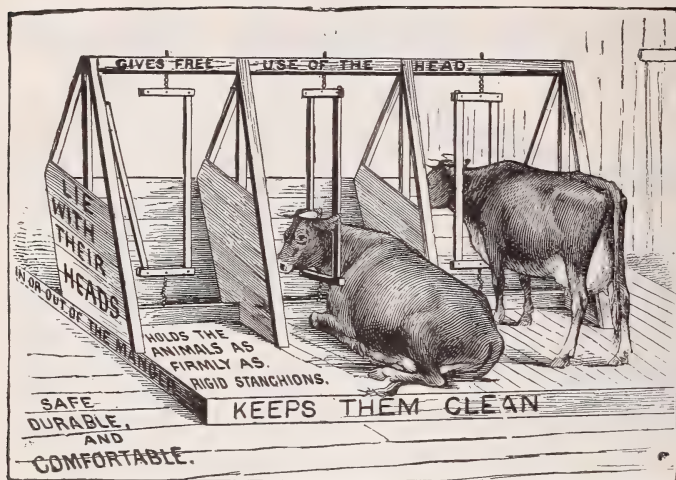 GIVES FREE USE OF THE HEAD.
LIE
WITH
THEIR
HEADS
IN OR OUT OF THE MANGER
HOLDS THE
ANIMALS AS
FIRMLY AS
RIGID STANCHIONS.
KEEPS THEM CLEAN
SAFE
DURABLE,
AND
COMFORTABLE.